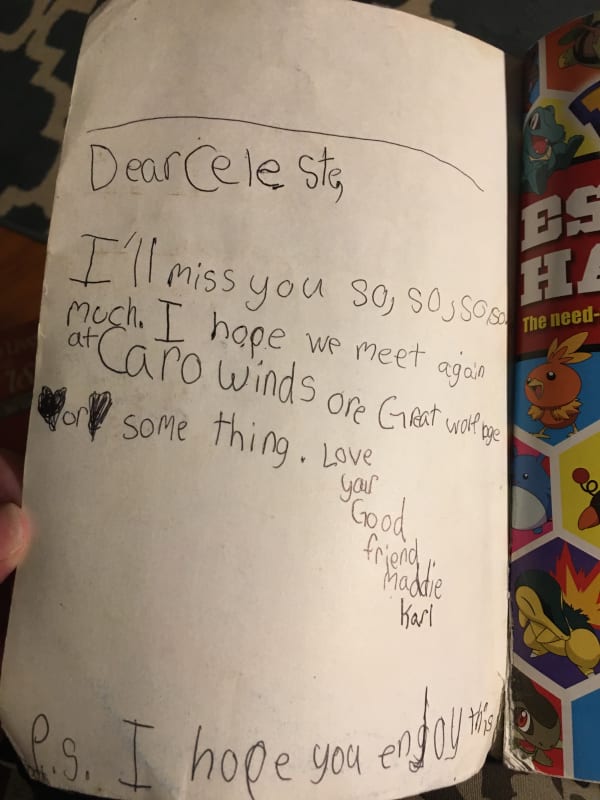 Dear Celeste,
I'll miss you so, so, so, so
much. I hope we meet again
at Caro winds ore Great wolf loge
or some thing. Love
your
Good
friend
Maddie
Karl
P.S. I hope you enjoy this
ES
HA
The need-